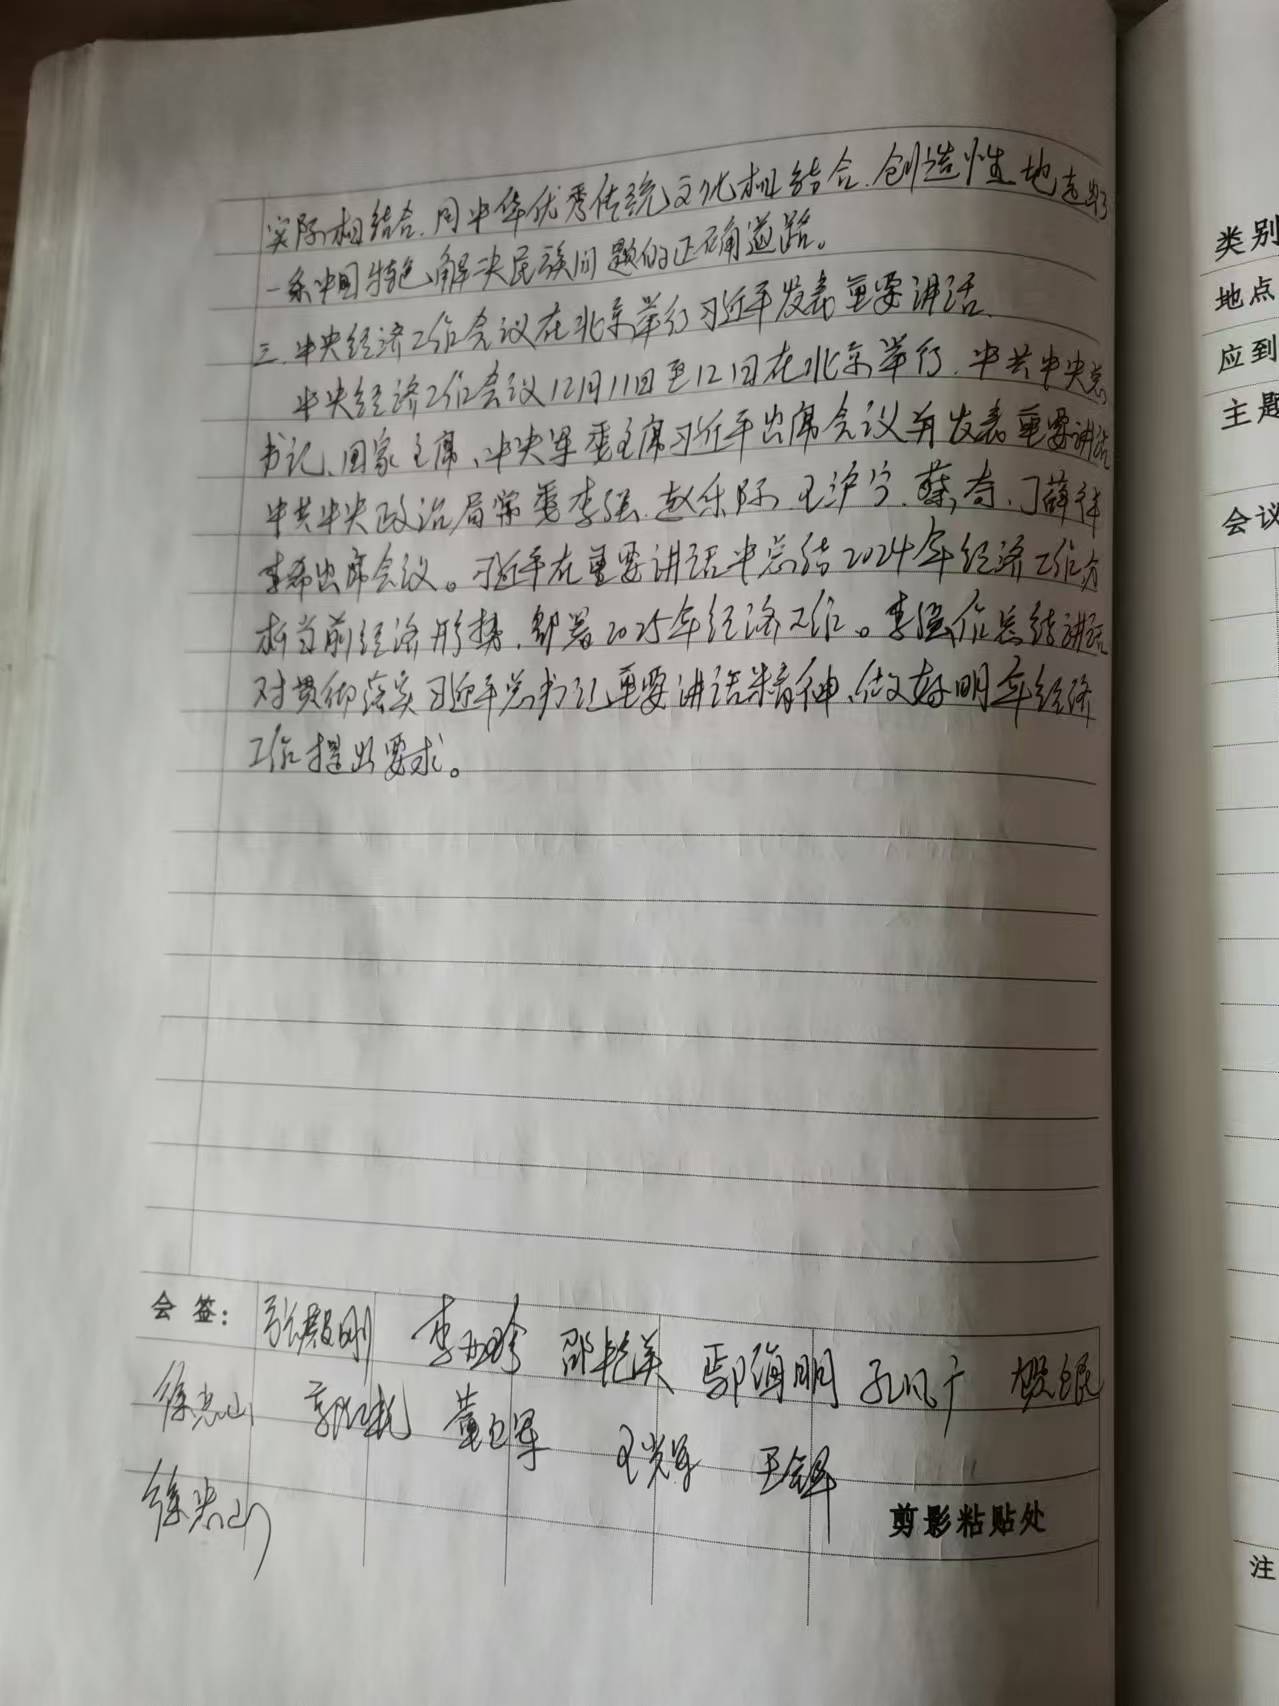 实际相结合.同中华优秀传统文化相结合.创造性地走出
一条中国特色解决民族问题的正确道路。
三.中央经济工作会议在北京举行习近平发表重要讲话.
中央经济工作会议12月11日至12日在北京举行.中共中央总
书记、国家主席、中央军委主席习近平出席会议并发表重要讲话
中共中央政治局常委李强.赵乐际.王沪宁.蔡奇.丁薛祥
李希出席会议。习近平在重要讲话中总结2024年经济工作分
析当前经济形势,部署2025年经济工作。李强作总结讲话
对贯彻落实习近平总书记重要讲话精神、做好明年经济
工作提出要求。
会 签:
张殿刚 邵艳美 鄢海明 孔凡广
徐忠山 董卫军 王学军
徐忠山
剪影粘贴处
类别
地点
应到
主题
会议
注